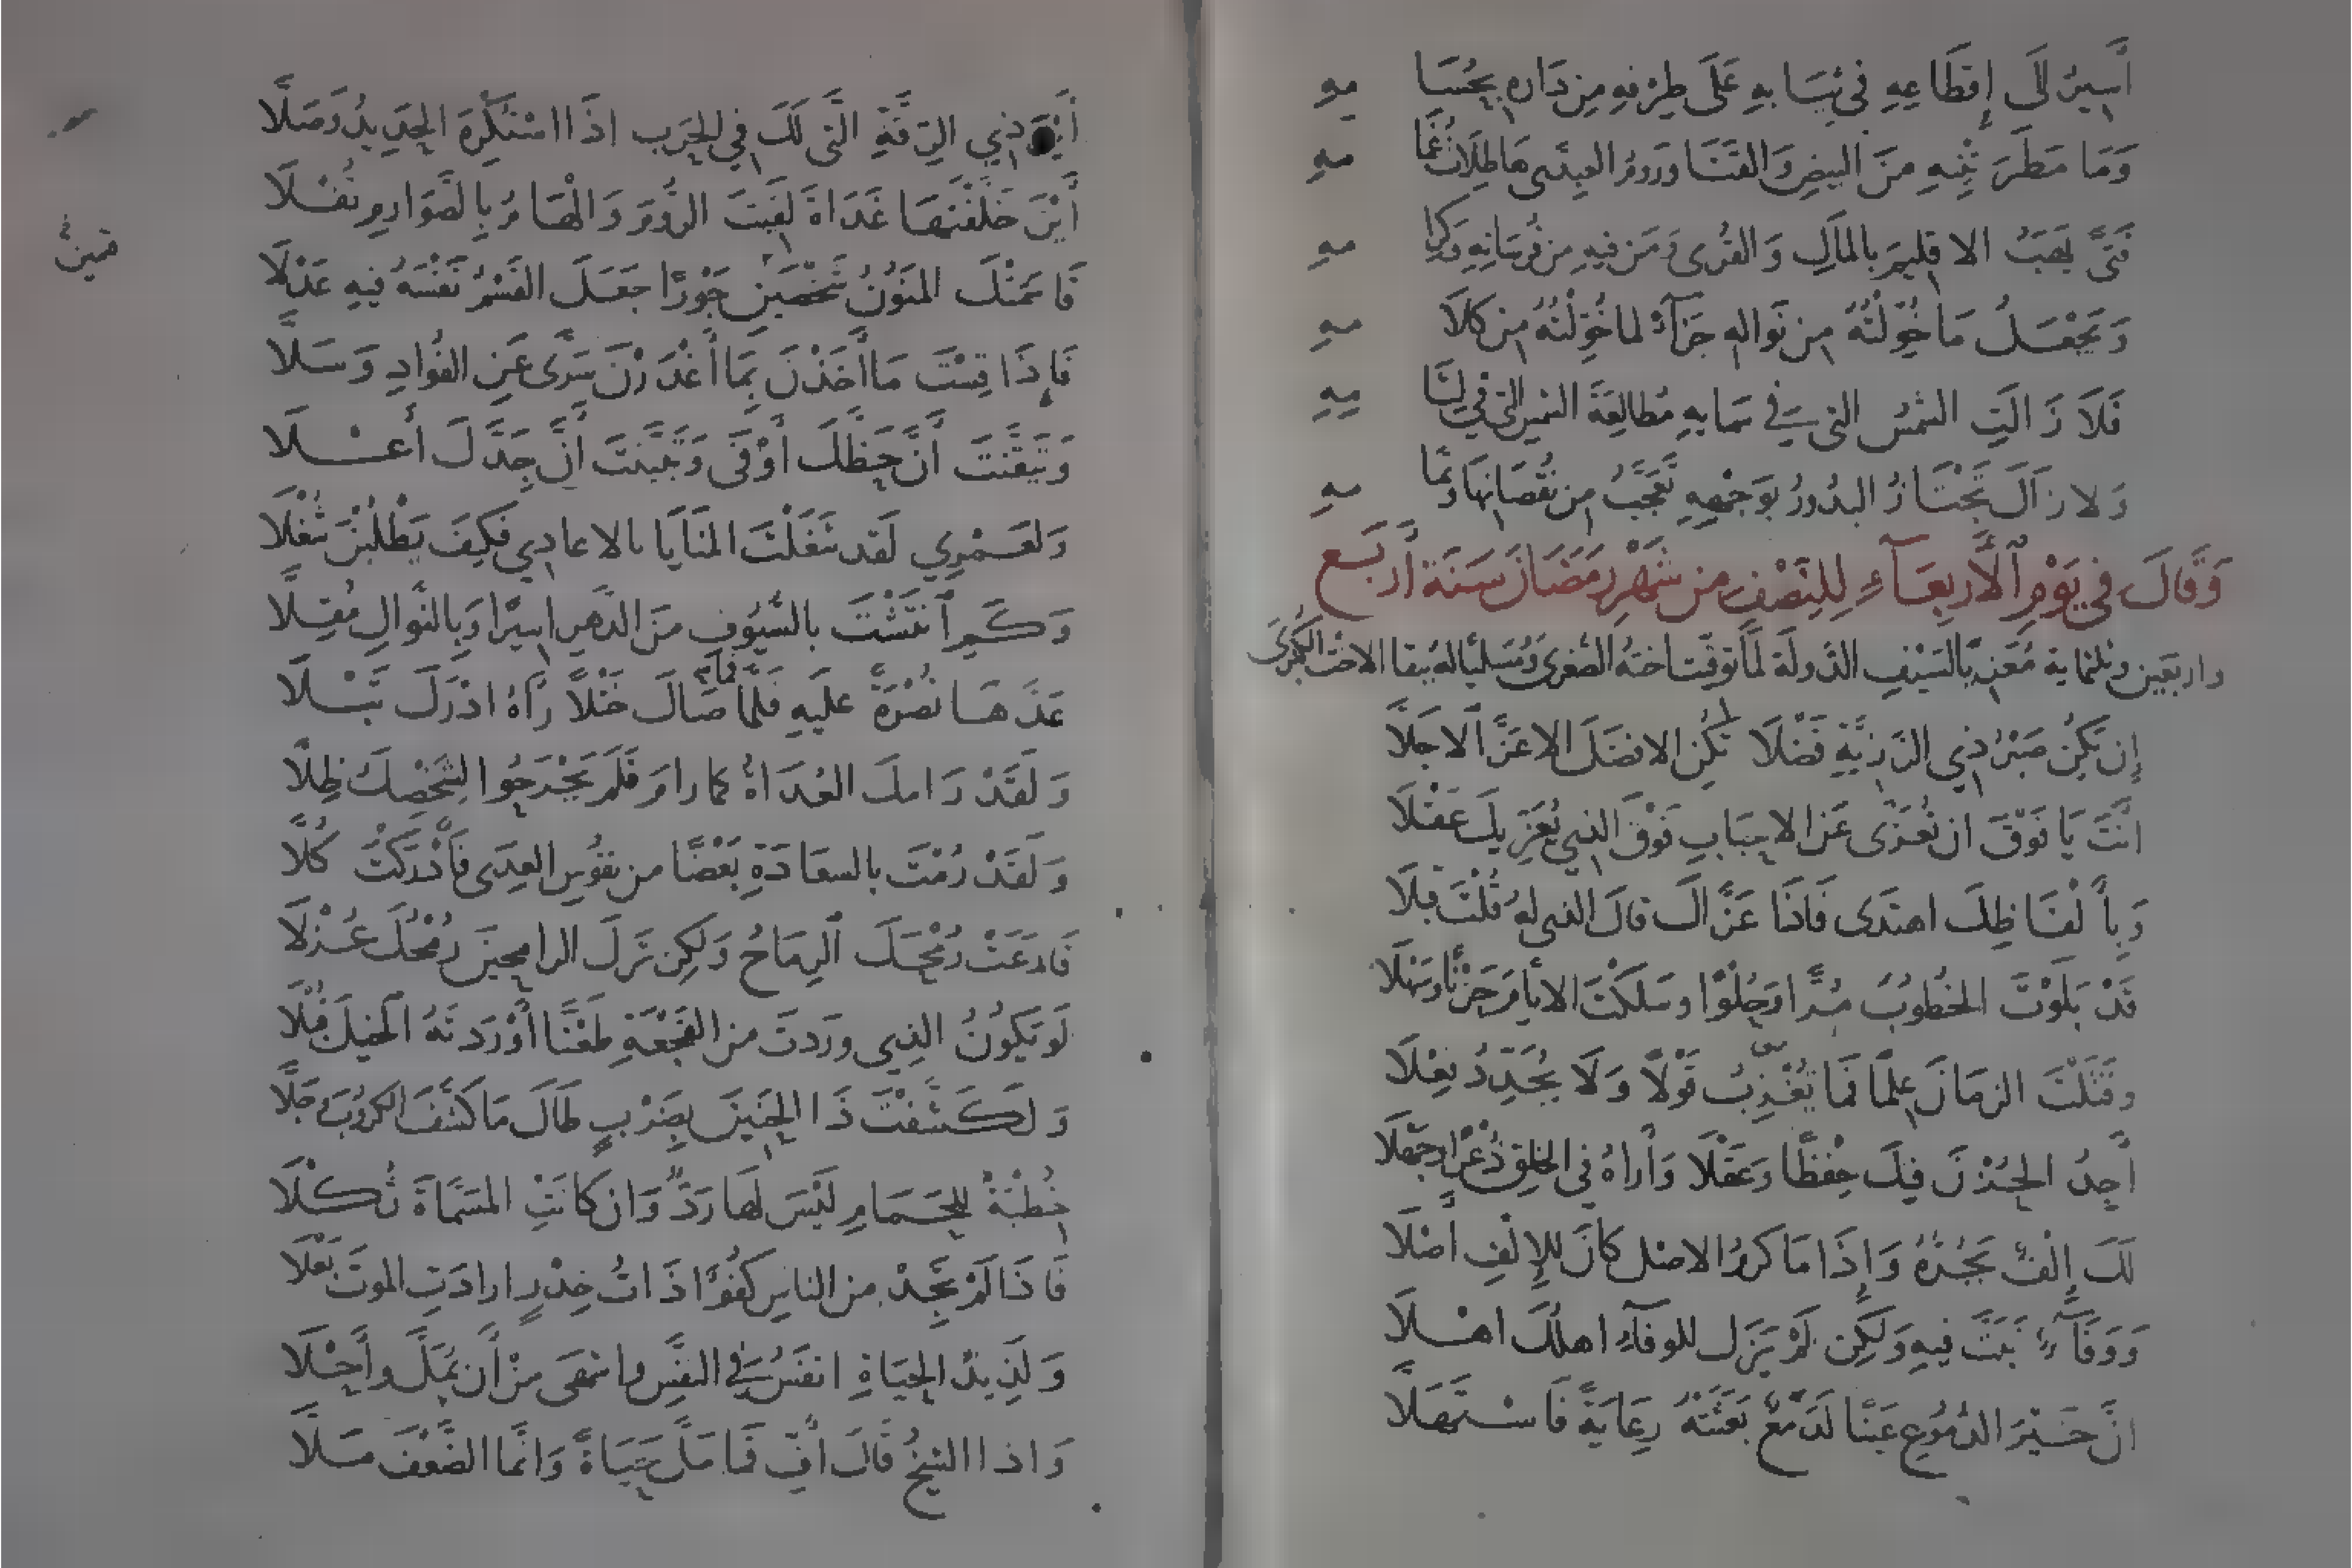 أَسِيرُ إلَى إِقْطَاعِهِ في ثِيَابهِ عَلَى طِرْفِهِ مِن دَارِهِ بِحُسَا
وَمَا مَطَرَتْنِيهِ مِنَ البيضِ وَالقَنَا وَرُومُ العِبِدَّى هَاطِلَاتُ غَمَا
فَتًى يَهَبُ الاقليمَ بالمَالِ وَالقُرَى وَمَن فيهِ من فُرسَانِهِ وَكرا
وَيَجْعَلُ مَا خُوِّلْتُهُ مِن نَوالهِ جَزَآءً لما خُوِّلْتُهُ مِن كلَا
فَلَا زَالَتِ الشمْسُ التي في سَمَايهِ مُطالِعَةَ الشمسِ التي في لثَا
وَلا زَالَ تَجْتَازُ البدُورُ بوَجْهِهِ تَعَجَّبُ مِن نُقْصَانِهَا وتَما
وَقَالَ في يَوْمِ ٱلأَربِعَآءِ لِلنِّصْفِ من شَهْرِ رَمَضَانَ سَنَةَ أَربَع
واربَعِين وثلثماية مُعَزيًا لسَيْفِ الدَولَة لَمَّا توفيَت اختهُ الصُغرى ومُسليًا لهُ ببقا الاخت الكُبرَى
إِن يَكُن صَبْرُ ذِي الرَزِيَّةِ فَضْلَا تَكُن الافضَلَ الاعَزَّ الاجَلَّا
انْتَ يَا فَوْقَ ان تُعَزَّى عَن الاحبَابِ فَوْقَ الذي يُعَزِّيكَ عَقْلَا
وَبِأَلْفَاظِكَ اهتَدَى فَاذَا عَزَّاكَ قالَ الذي لهُ قُلْتَ قبلَا
قَدْ بَلَوْتَ الخُطوبَ مُرًّا وَحُلْوًا وسَلَكْتَ الايامَ حَزْنًا وسَهْلَا
وقَتَلْتَ الزمَانَ عِلْمًا فَمَا يُغْرِبُ قَوْلًا وَلَا يُجَدِّدُ فِعْلَا
أَجِدُ الحُزْنَ فيكَ حِفْظًا وَعَقْلًا وَأَراهُ في الخلقِ ذُعْرًا وجَهْلَا
لَكَ إِلْفٌ يَجُرُّهُ وَإِذَا مَا كرُمَ الاصْل كانَ للإِلْفِ أَصْلَا
وَوَفَآءٌ نَبَتَّ فيهِ وَلَكِن لَمْ يَزَل للوفَآءِ اهلُكَ اهْلَا
انَّ خَيْرَ الدُمُوعِ عَيْنًا لَدَمْعٌ بَعَثَتْهُ رِعَايَةٌ فَاسْتَهَلَّا
أَيْنَ ذِي الرِقَّةِ الَّتي لَكَ في الحَرب اذَا استُكْرِهَ الحَدِيدُ وَصَلَّا
أَيْنَ خَلَّفْتَهَا غَدَاةَ لَقِيتَ الرُّومَ وَالْهَامُ بِالصَّوَارِمِ تُفْلَا
قَاسَمَتْكَ المَنُونُ شَخْصَيْنِ جَوْرًا جَعَلَ القَسْمُ نَفْسَهُ فيهِ عَدْلَا
فَإِذَا قِسْتَ مَا أَخَذْنَ بِمَا أَغْدَرْنَ سَرَّى عَنِ الفُؤادِ وَسَلَّا
وَتَيَقَّنتَ أَنَّ حَظَّكَ أَوْفَى وَتَبَيَّنتَ أَنَّ جَدَّكَ أَعْلَا
وَلعَمْرِي لَقَد شَغَلْتَ المنَايَا بالاعادِي فكيفَ يَطْلُبْنَ شُغْلَا
وَكَمِ ٱنْتَشْتَ بالسُّيُوفِ مِنَ الدَّهرِ اسِيرًا وَبِالنَّوالِ مُقِلَّا
عَدَّهَا نُصْرَةً عليهِ فَلَمَّا صَالَ خَتْلًا رَآهُ ادْرَكَ تَبْلَا
وَلَقَدْ رَامكَ العُدَاةُ كما رامَ فَلَم يَجْرَحُوا لِشَخْصِكَ ظِلَّا
وَلَقَدْ رُمْتَ بالسعَادَةِ بَعْضًا من نفُوسِ العِدَى فَأَدْرَكْتَ كُلَّا
قَارَعَتْ رُمْحَكَ ٱلرِمَاحُ وَلكِن تَرَكَ الرامحِينَ رُمْحُكَ عُزْلَا
لَو يَكُونُ الذِي ورَدتَ من الفَجْعَةِ طَعْنًا أَوْرَدتَهُ الخيلَ قُبْلَا
وَلَكَشَّفْتَ ذَا الحَنِينَ بِضَرْبٍ طَالَ مَا كَشَّفَ الكرُوبَ وجَلَّا
خُطْبَةٌ للحمَامِ لَيْسَ لهَا رَدٌّ وَان كانَتِ المسَمَّاةَ ثُكْلَا
فَاذَا لَمْ تَجِدْ من الناسِ كُفْوًا ذَاتُ خِدْرٍ ارادَتِ الموتَ بَعْلَا
وَلَذِيذُ الحيَاةِ انفَسُ في النفْسِ واشهَى مِنْ أَن يُمَلَّ وأَحْلَا
وَاذا الشيخُ قَالَ أُفٍّ فَمَا مَلَّ حَيَاةً وَانَّمَا الضَّعْفَ مَلَّا